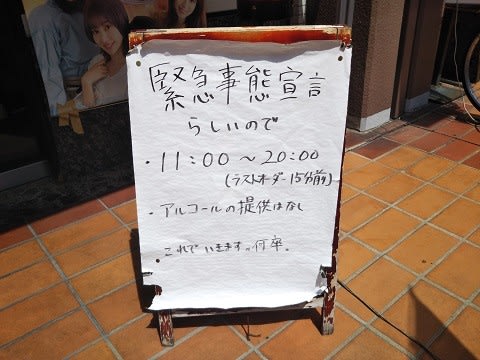 緊急事態宣言
らしいので
・11:00〜20:00
(ラストオーダー15分前)
・アルコールの提供はなし
これでいきます。何卒。